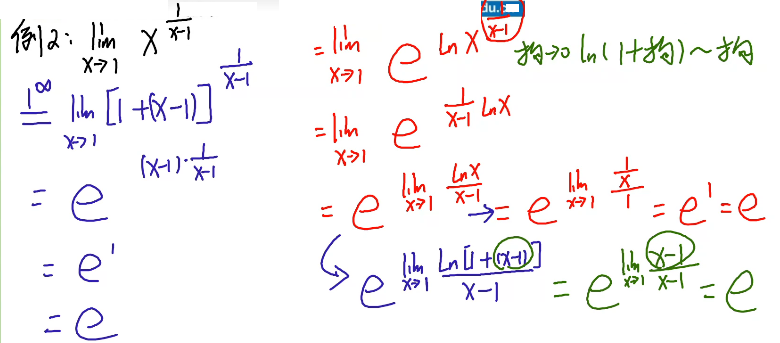 例2: lim_{x→1} x^{1/(x-1)}
1^∞ = lim_{x→1} [1+(x-1)]^{1/(x-1)}
= e^{(x-1)·1/(x-1)}
= e^1
= e
= lim_{x→1} e^{ln x^{1/(x-1)}} 狗→0 ln(1+狗)~狗
= lim_{x→1} e^{1/(x-1) ln x}
= e^{lim_{x→1} ln x/(x-1)} → = e^{lim_{x→1} (1/x)/1} = e^1 = e
e^{lim_{x→1} ln[1+(x-1)]/(x-1)} = e^{lim_{x→1} (x-1)/(x-1)} = e